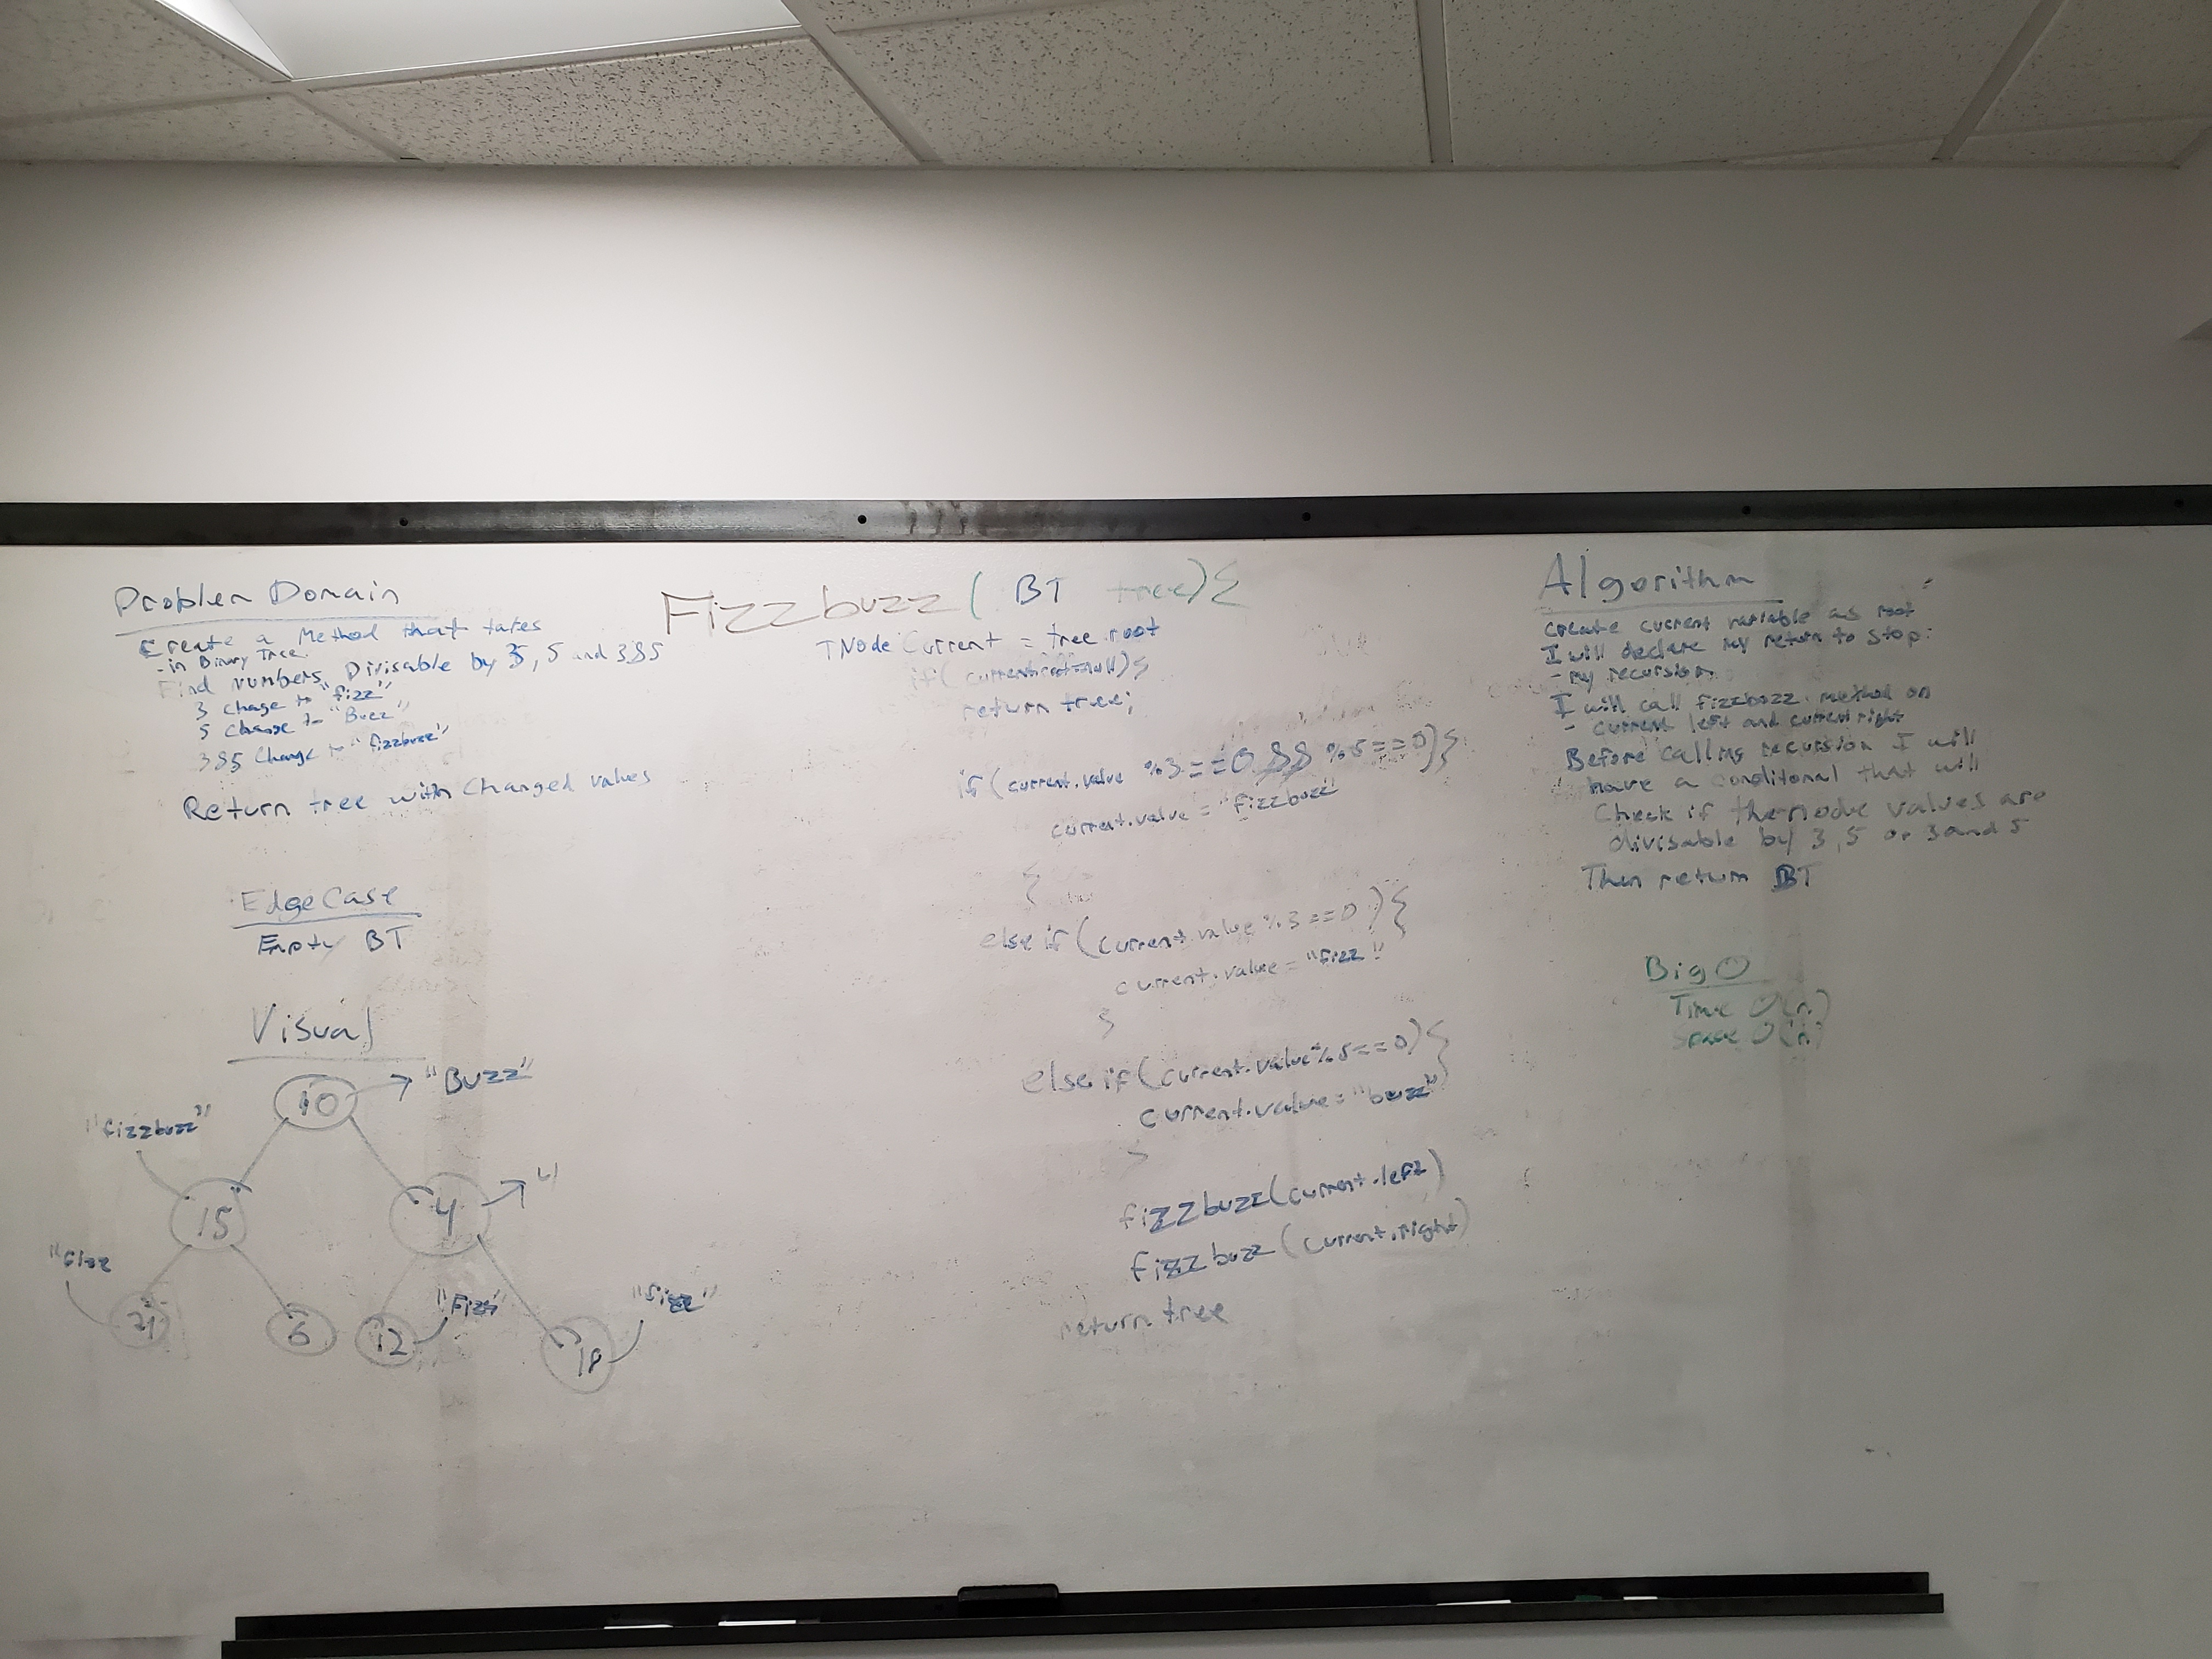 Problem Domain
Create a Method that takes
- in Binary Tree.
Find numbers Divisable by 3, 5 and 3&5
3 change to "fizz"
5 Change to "Buzz"
3&5 Change to "fizzbuzz"
Return tree with Changed values
Edge Case
Empty BT
Visual
10 → "Buzz"
"fizzbuzz"
15
4 → 4
"fizz
21
6
12
"Fizz"
18
"fizz"
Fizzbuzz ( BT tree){
TNode Current = tree.root
if(
return tree;
if (current.value %3==0 && %5==0){
current.value = "fizzbuzz"
}
else if (current.value %3==0){
current.value = "fizz"
}
else if (current.value%5==0){
current.value = "buzz"
}
fizzbuzz(current.left)
fizzbuzz(current.right)
return tree
Algorithm
Create current variable as root
I will declare my return to stop
- my recursion
I will call fizzbuzz method on
- current left and current right
Before calling recursion I will
have a conditonal that will
Check if the node values are
divisable by 3, 5 or 3 and 5
Then return BT
Big O
Time O(n)
Space O(n)